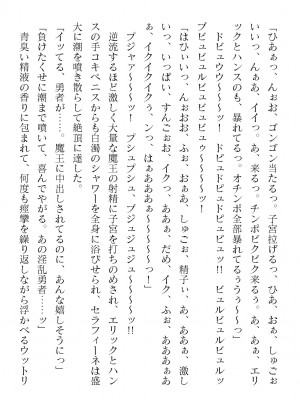 「ひあぁっ、んぉお、ゴンゴン当たるっ。子宮拉げるっ、ひあ、おぁ、しゅご
いぃっ、んぁぁ、イイっ。あ、来るっ。チンポビクビク来るぅ。あ、あぁ、エリ
ックとハンスのも、暴れてるっ。オチンポ全部暴れてるぅぅ〜〜っ」
　ドビュウウ〜〜〜ッ！　ドビュドビュドビュビュッ!!　ビュルビュルビュルッ
ブビュビュルビュルビュビュゥ〜〜〜〜ッ！
「はひぃいっ、んぉおお、ふぉ、おぁぁ、しゅごぉ、精子ぃ、あ、あぁぁ、激し
いっ、いっぱい、すんごぉお、イク、あぁぁ、だめ、イク、ふぉ、おぁぁ、あ
ぁ、イクイクイクぅ、ンっ、はぁあああぁ〜〜〜〜っ！」
　プシャァ〜〜〜ッ！　プシュプシュ、プシュジュジュ〜〜〜〜ッ!!
　逆流するほど激しく大量な魔王の射精に子宮を打ちのめされ、エリックとハン
スの手コキペニスからも白濁のシャワーを全身に浴びせられ、セラフィーネは盛
大に潮を噴き散らして絶頂に達した。
「イッてる、勇者が……。魔王に中出しされてるのに、あんな嬉しそうにっ」
「負けたくせに潮まで噴いて、喜んでやがる。あの淫乱勇者……ッ」
　青臭い精液の香りに包まれて、何度も痙攣を繰り返しながら浮かべるウットリ